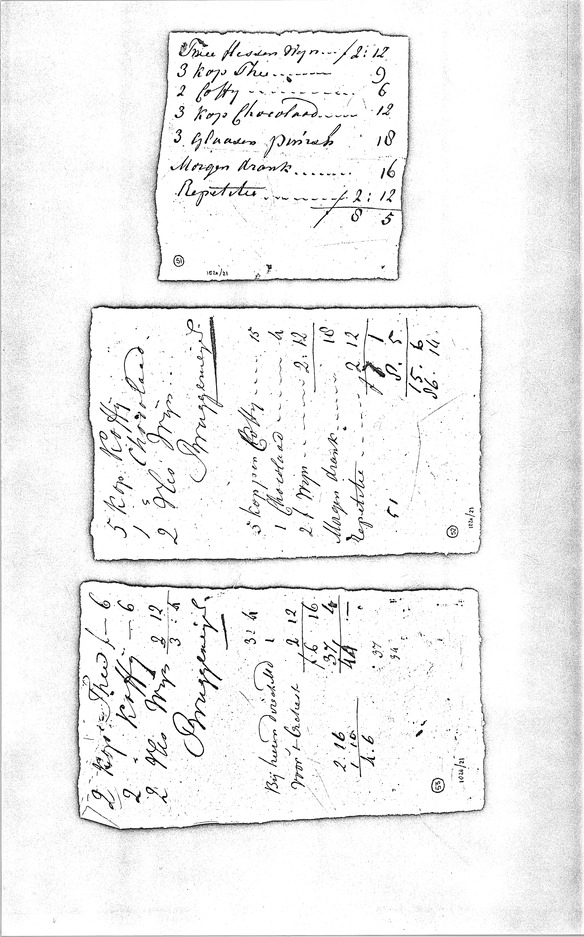 Twee flessen Wyn ƒ 2:12
3 kop Thee 9
2 Coffy 6
3 kop Chocolaad 12
3 glaasen 18
Morgen drank 16
Repetitie ƒ 2:12
ƒ 8 5
51
152a/21
5 kop Koffy
1 s Chocolaad
2 Fles Wijn
Bruggemeijer
5 koppen Coffy 15
1 Chocolaad 4
2 f Wyn 2:12
Morgen drank 18
repetitie 2 12
1
51 8. 5
15. 6
86. 14
52
152a/21
2 kops Thee ƒ – 6
2 " Koffy – 6
2 Fles Wijn 2 12
3 : 4
Bruggemeijer
32 4
Bij heeren 1
Voor 't Orchest 2 12
ƒ 6 16
37 4
44 –
2.16
1.10
4.6
37
94
53
152a/21